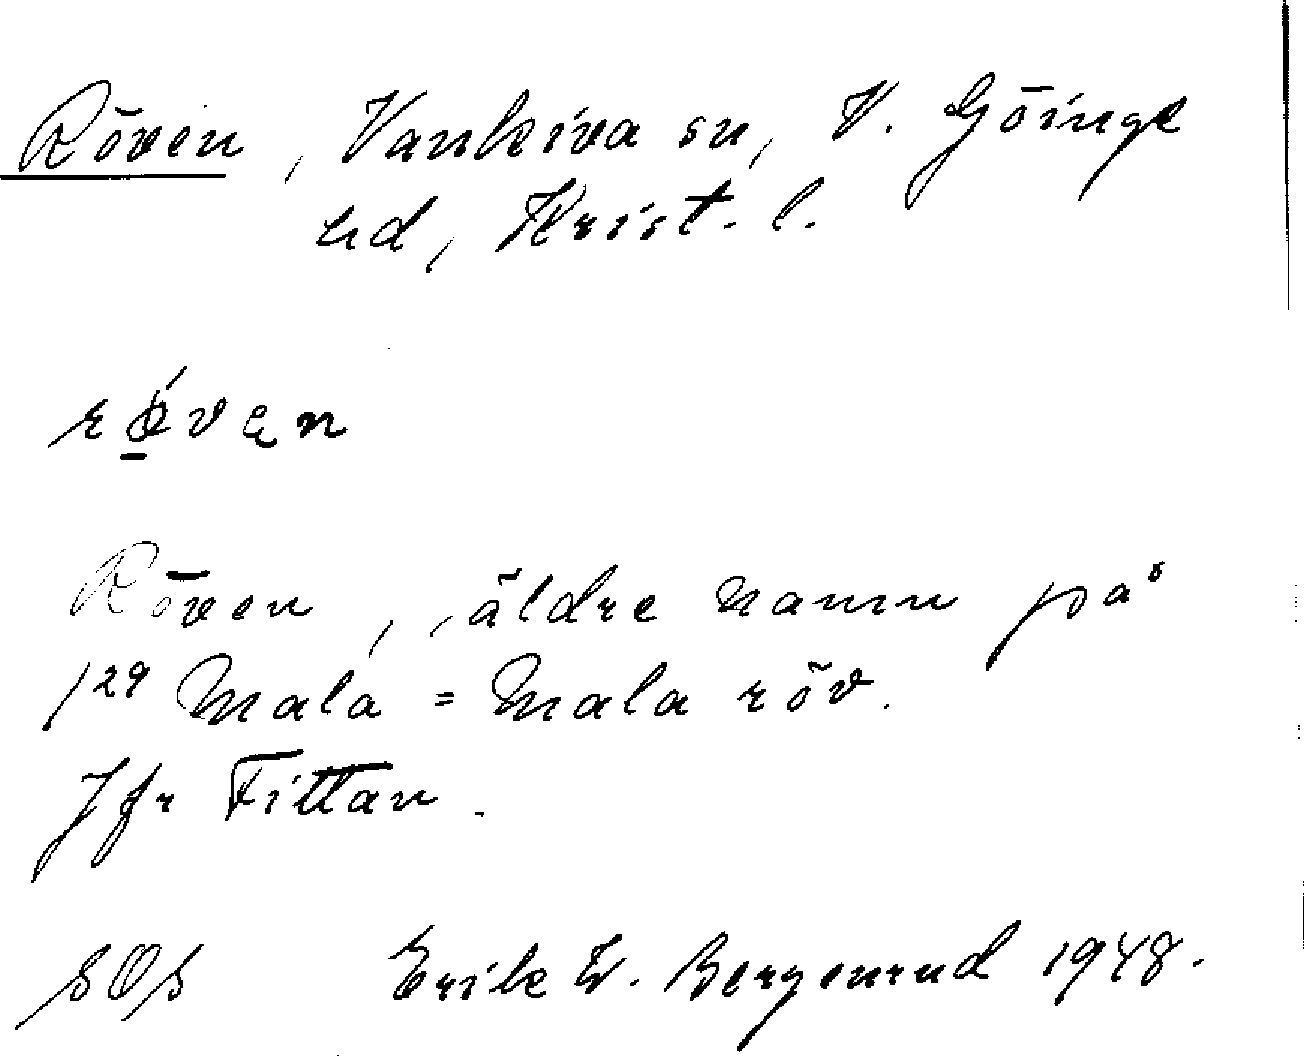 Röven, Vankiva sn, V. Göinge
hd, Krist. l.
rǿ̱vęn
Röven, äldre namn på
1²⁹ Mala = Mala röv.
Jfr Fittan.
SOS Erik W. Bergenrud 1948.